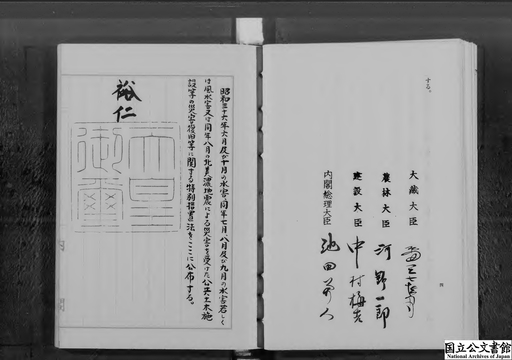 する。
大蔵大臣
農林大臣 河野一郎
建設大臣 中村梅吉
内閣総理大臣 池田勇人
昭和三十六年六月及び十月の水害、同年七月、八月及び九月の水害若しく
は風水害又は同年八月の北美濃地震による災害を受けた公共土木施
設等の災害復旧等に関する特別措置法をここに公布する。
裕仁
天皇
御璽
国立公文書館
National Archives of Japan